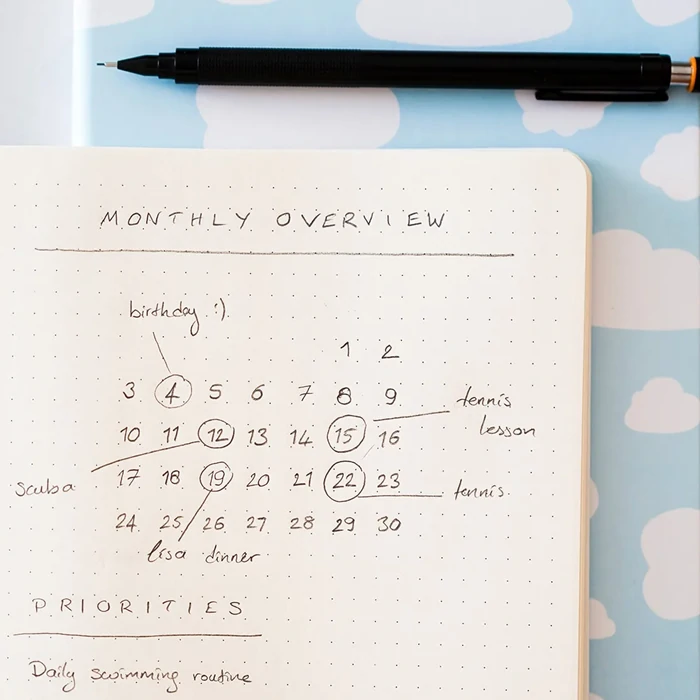 MONTHLY OVERVIEW
birthday :)
1 2
3 4 5 6 7 8 9
tennis
lesson
10 11 12 13 14 15 16
scuba
17 18 19 20 21 22 23
tennis.
24 25 26 27 28 29 30
lisa dinner
PRIORITIES
Daily swimming routine